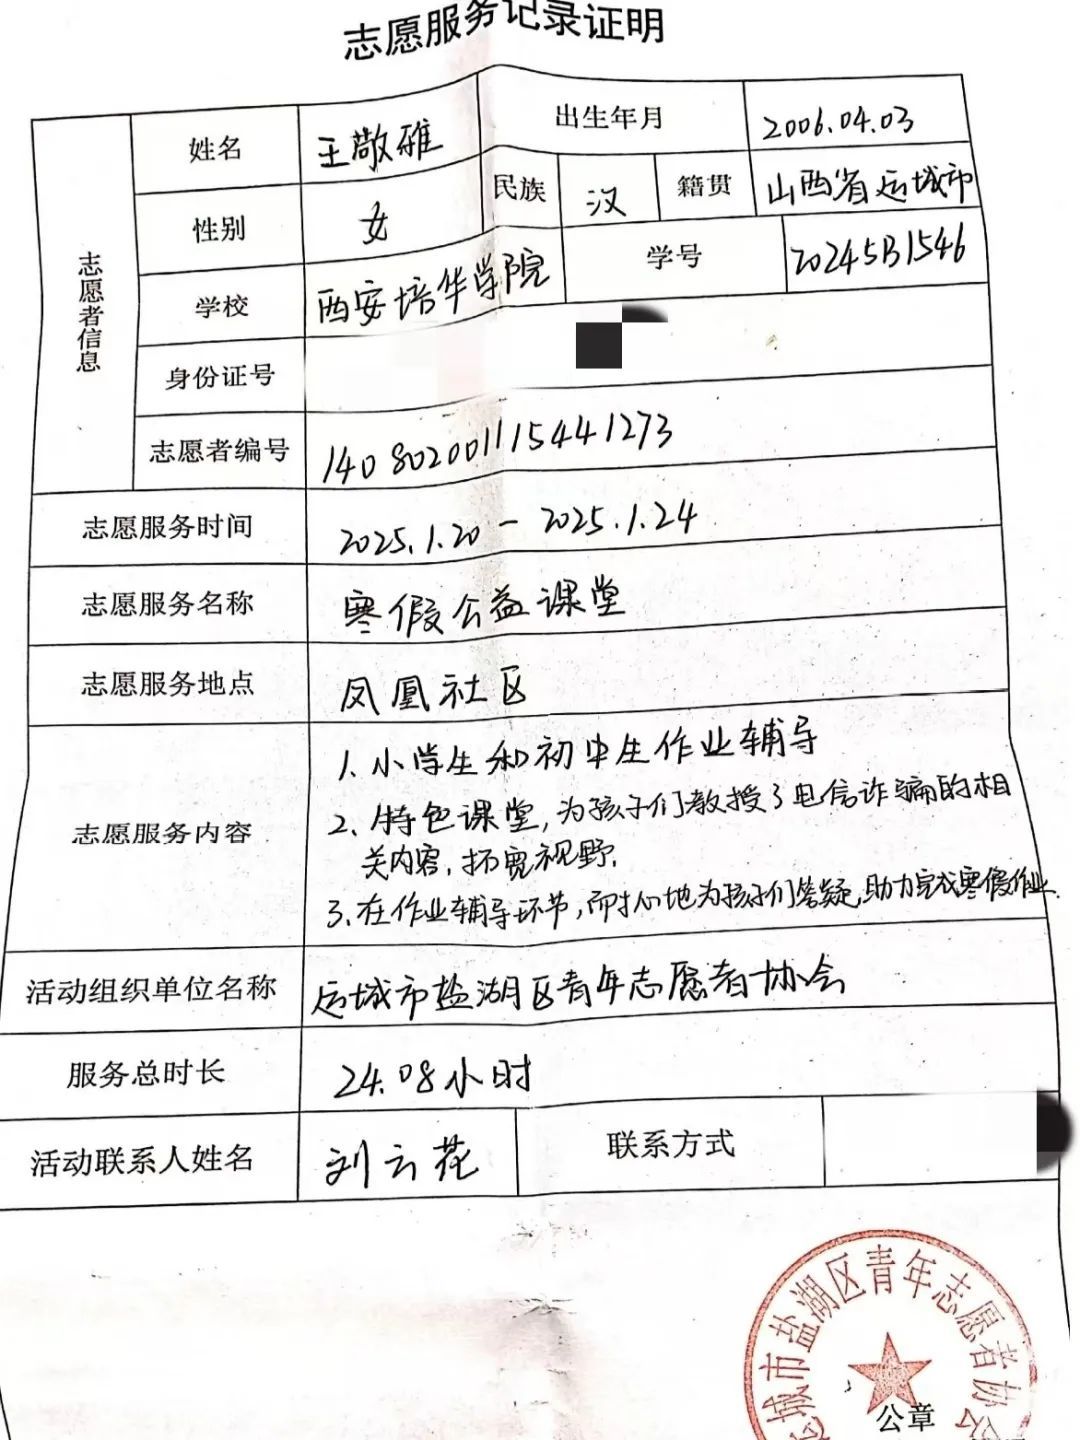 志愿服务记录证明
志愿者信息
姓名 王敬雅 出生年月 2006.04.03
性别 女 民族 汉 籍贯 山西省运城市
学校 西安培华学院 学号 20245B1546
身份证号
志愿者编号 140802001115441273
志愿服务时间 2025.1.20 - 2025.1.24
志愿服务名称 寒假公益课堂
志愿服务地点 凤凰社区
志愿服务内容
1、小学生和初中生作业辅导
2、特色课堂,为孩子们教授了电信诈骗的相
关内容,拓宽视野.
3、在作业辅导环节,耐心地为孩子们答疑,助力完成寒假作业.
活动组织单位名称 运城市盐湖区青年志愿者协会
服务总时长 24.08小时
活动联系人姓名 刘云花 联系方式
运城市盐湖区青年志愿者协会
公章